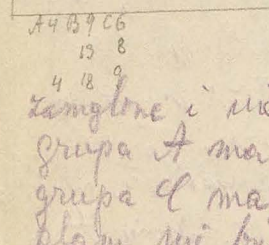 A4 B9 C6
13 8
4 18 9
zamglone i nie
grupa A ma
grupa C ma